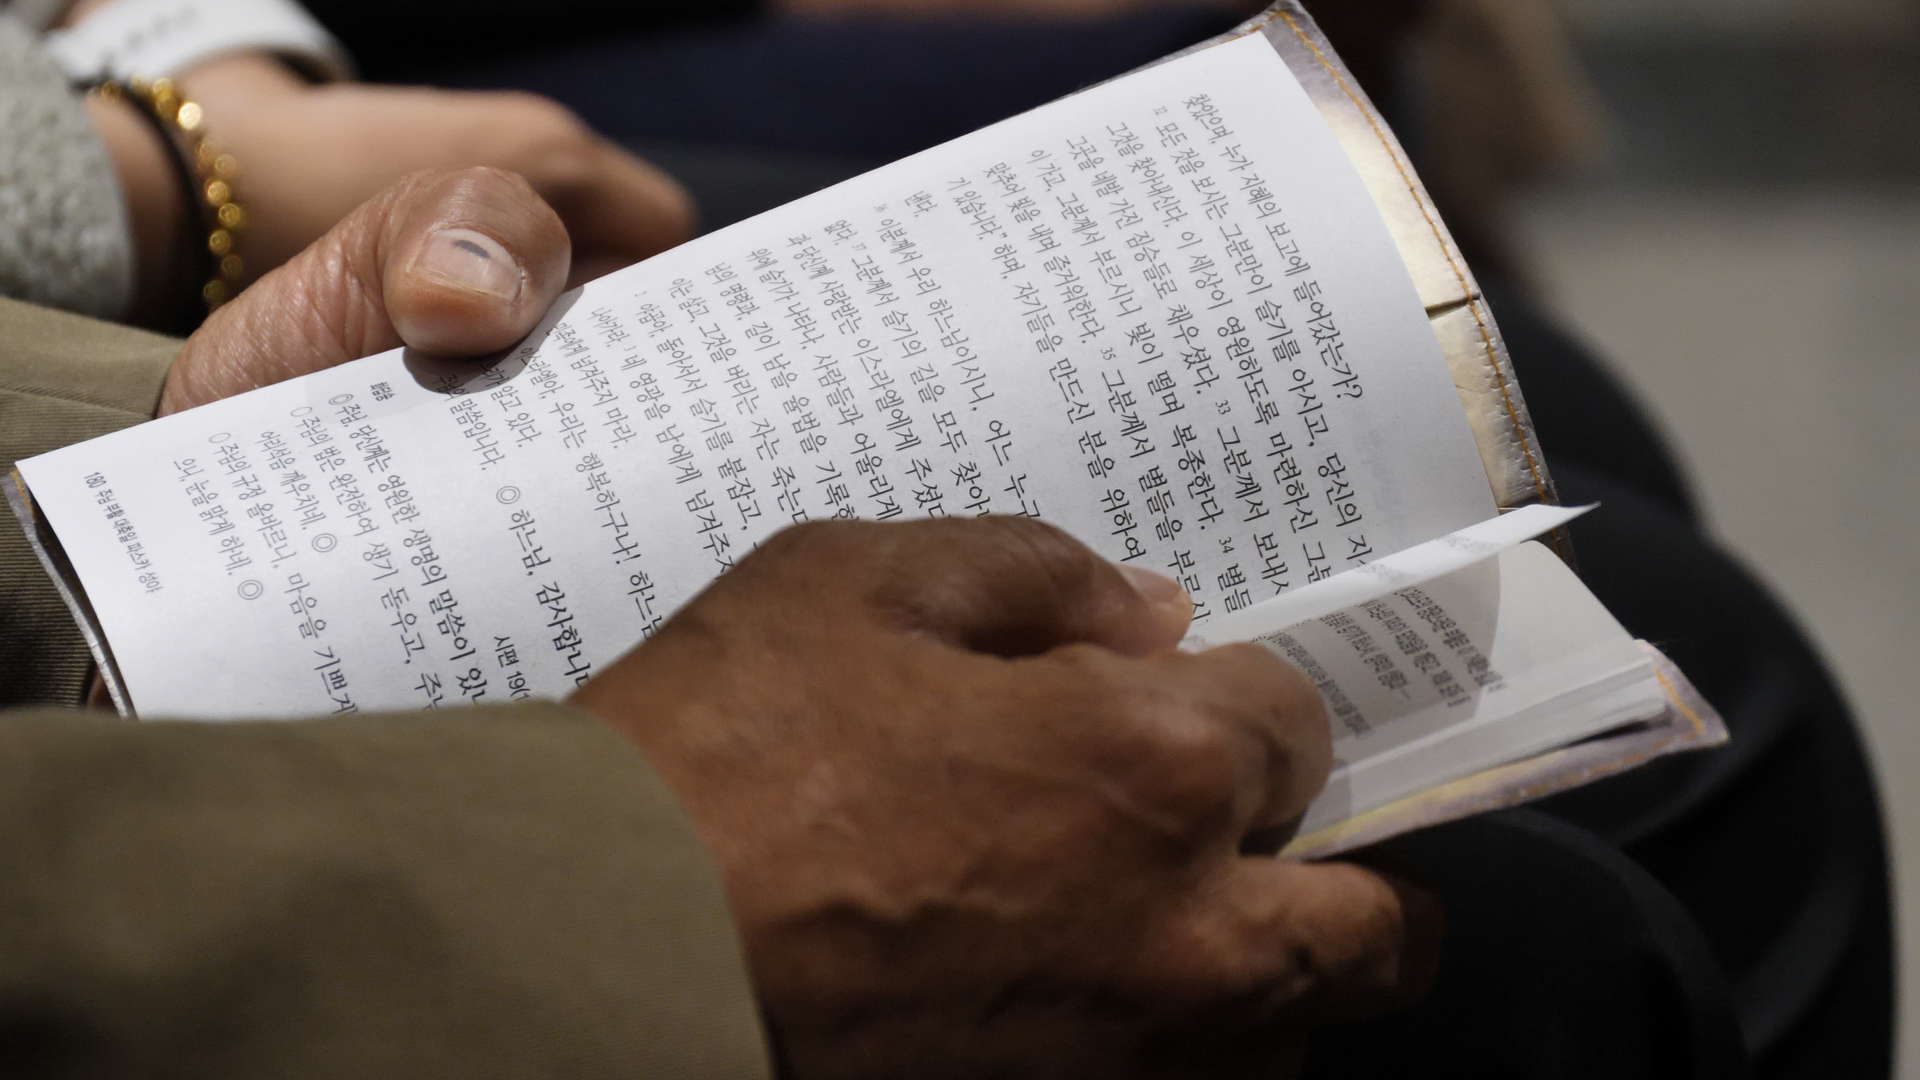 찾았으며, 누가 지혜의 보고에 들어갔는가?
32 모든 것을 보시는 그분만이 슬기를 아시고, 당신의
그것을 찾아내신다. 이 세상이 영원하도록 마련하신
그곳을 네발 가진 짐승들로 채우셨다. 33 그분께서 보내시
이 가고, 그분께서 부르시니 빛이 떨며 복종한다. 34 별들
맞추어 빛을 내며 즐거워한다. 35 그분께서 별들을 부르시
기 있습니다.” 하며, 자기들을 만드신 분을 위하여
낸다.
36 이분께서 우리 하느님이시니, 어느 누구
없다. 37 그분께서 슬기의 길을 모두 찾아
과 당신께 사랑받는 이스라엘에게 주셨다
위에 슬기가 나타나, 사람들과 어울리게
님의 명령과, 길이 남을 율법을 기록한
이는 살고, 그것을 버리는 자는 죽는다
2 야곱아, 돌아서서 슬기를 붙잡고,
나아가라. 3 네 영광을 남에게 넘겨주지
민족에게 넘겨주지 마라.
이스라엘아, 우리는 행복하구나! 하느님
가 알고 있다.
주님의 말씀입니다. ◎ 하느님, 감사합니다
화답송 시편 19(
◎ 주님, 당신께는 영원한 생명의 말씀이 있나
○ 주님의 법은 완전하여 생기 돋우고, 주
어리석음 깨우치네. ◎
○ 주님의 규정 올바르니, 마음을 기쁘게
으니, 눈을 맑게 하네. ◎
180 주님 부활 대축일 파스카 성야